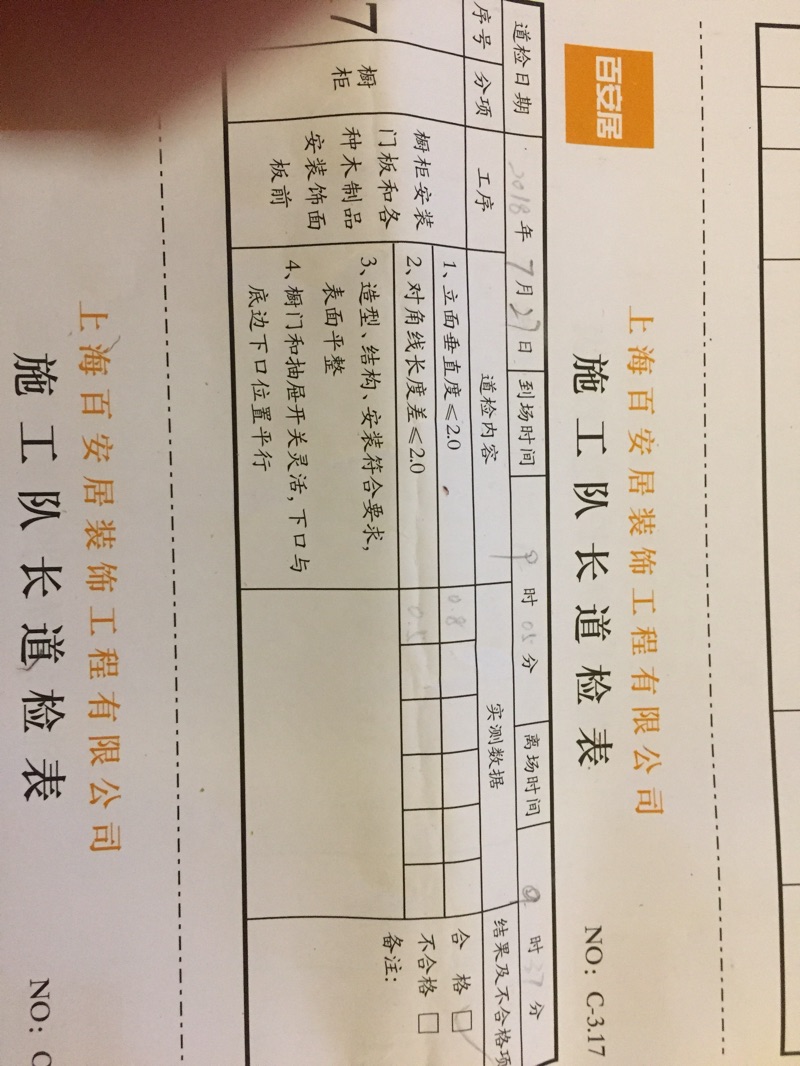 百安居
上海百安居装饰工程有限公司
施工队长道检表
NO: C-3.17
道检日期 2018年7月27日 到场时间 9时05分 离场时间 9时37分
序号 分项 工序 道检内容 实测数据 结果及不合格项
7 橱柜
橱柜安装
门板和各
种木制品
安装饰面
板前
1、立面垂直度≤2.0 0.8
2、对角线长度差≤2.0 0.5
3、造型、结构、安装符合要求,
表面平整
4、橱门和抽屉开关灵活,下口与
底边下口位置平行
合格 □
不合格 □
备注:
上海百安居装饰工程有限公司
施工队长道检表
NO: C